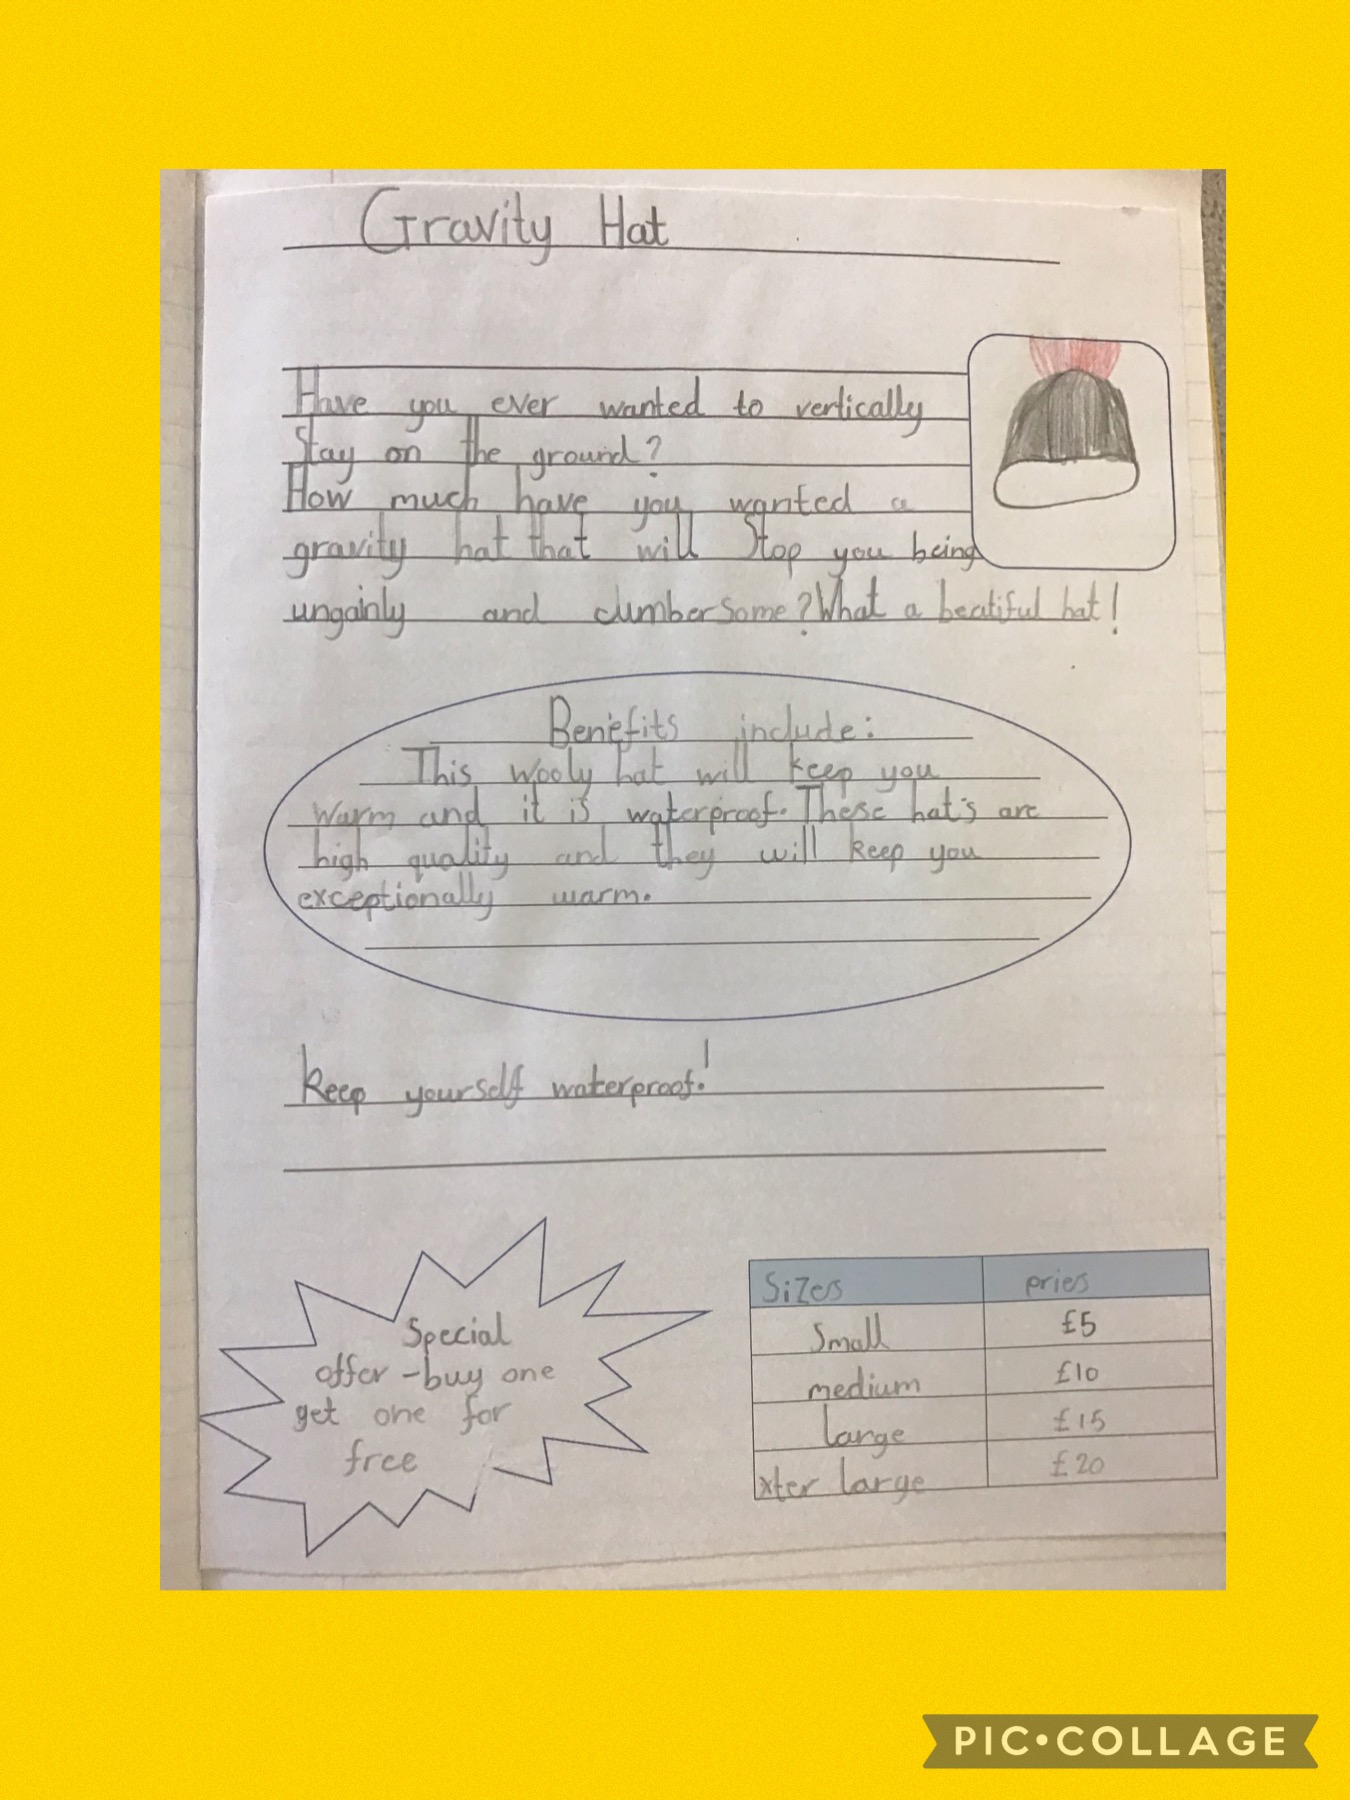 Gravity Hat
Have you ever wanted to vertically
Stay on the ground?
How much have you wanted a
gravity hat that will Stop you being
ungainly and clumbersome? What a beatiful hat!
Benefits include:
This wooly hat will keep you
warm and it is waterproof. These hat's are
high quality and they will keep you
exceptionally warm.
keep yourself waterproof!
Special
offer - buy one
get one for
free
Sizes pries
Small £5
medium £10
large £15
xter large £20
PIC•COLLAGE